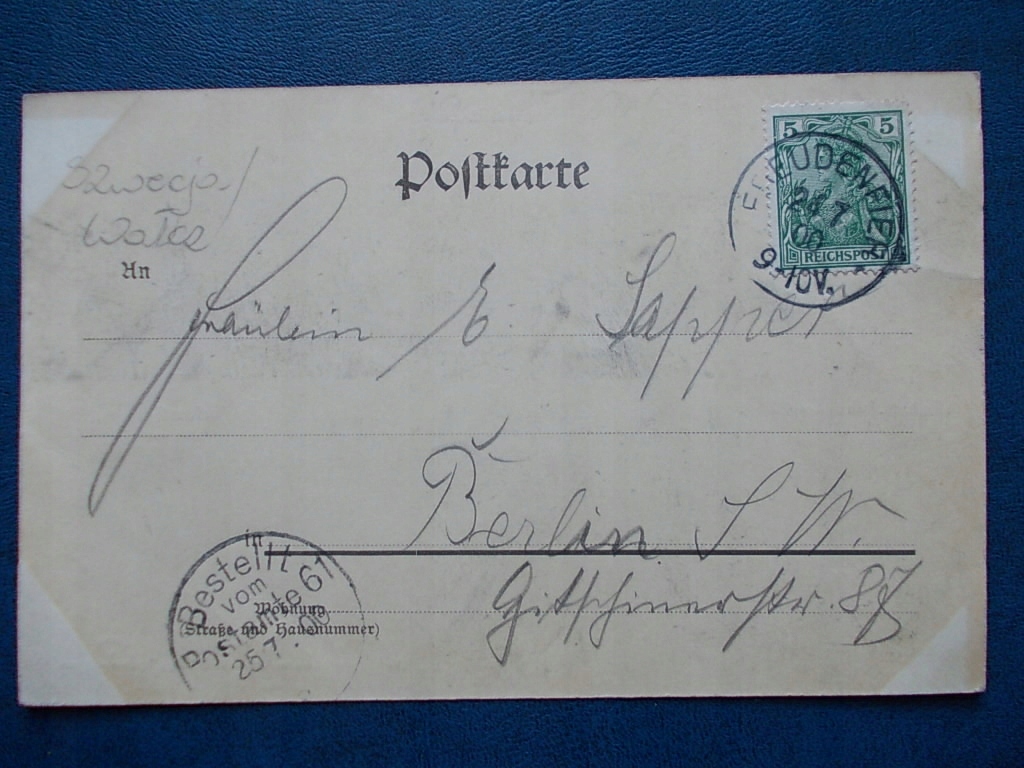 Postkarte
5 5
REICHSPOST
24 7
00
9-10V.
An
Fräulein E. Sapper
in Berlin S. W.
Gitschinerstr. 87
Wohnung
(Straße und Hausnummer)
Bestellt
vom
Postamte 61
25 7. 00